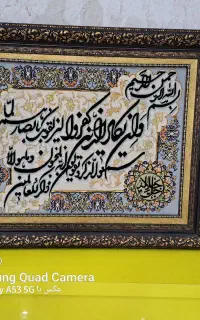 بسم الله الرحمن الرحيم
وإن يكاد الذين كفروا ليزلقونك بأبصارهم
لما سمعوا الذكر ويقولون إنه لمجنون
وما هو إلا ذكر للعالمين
ung Quad Camera
y A53 5G عکس با